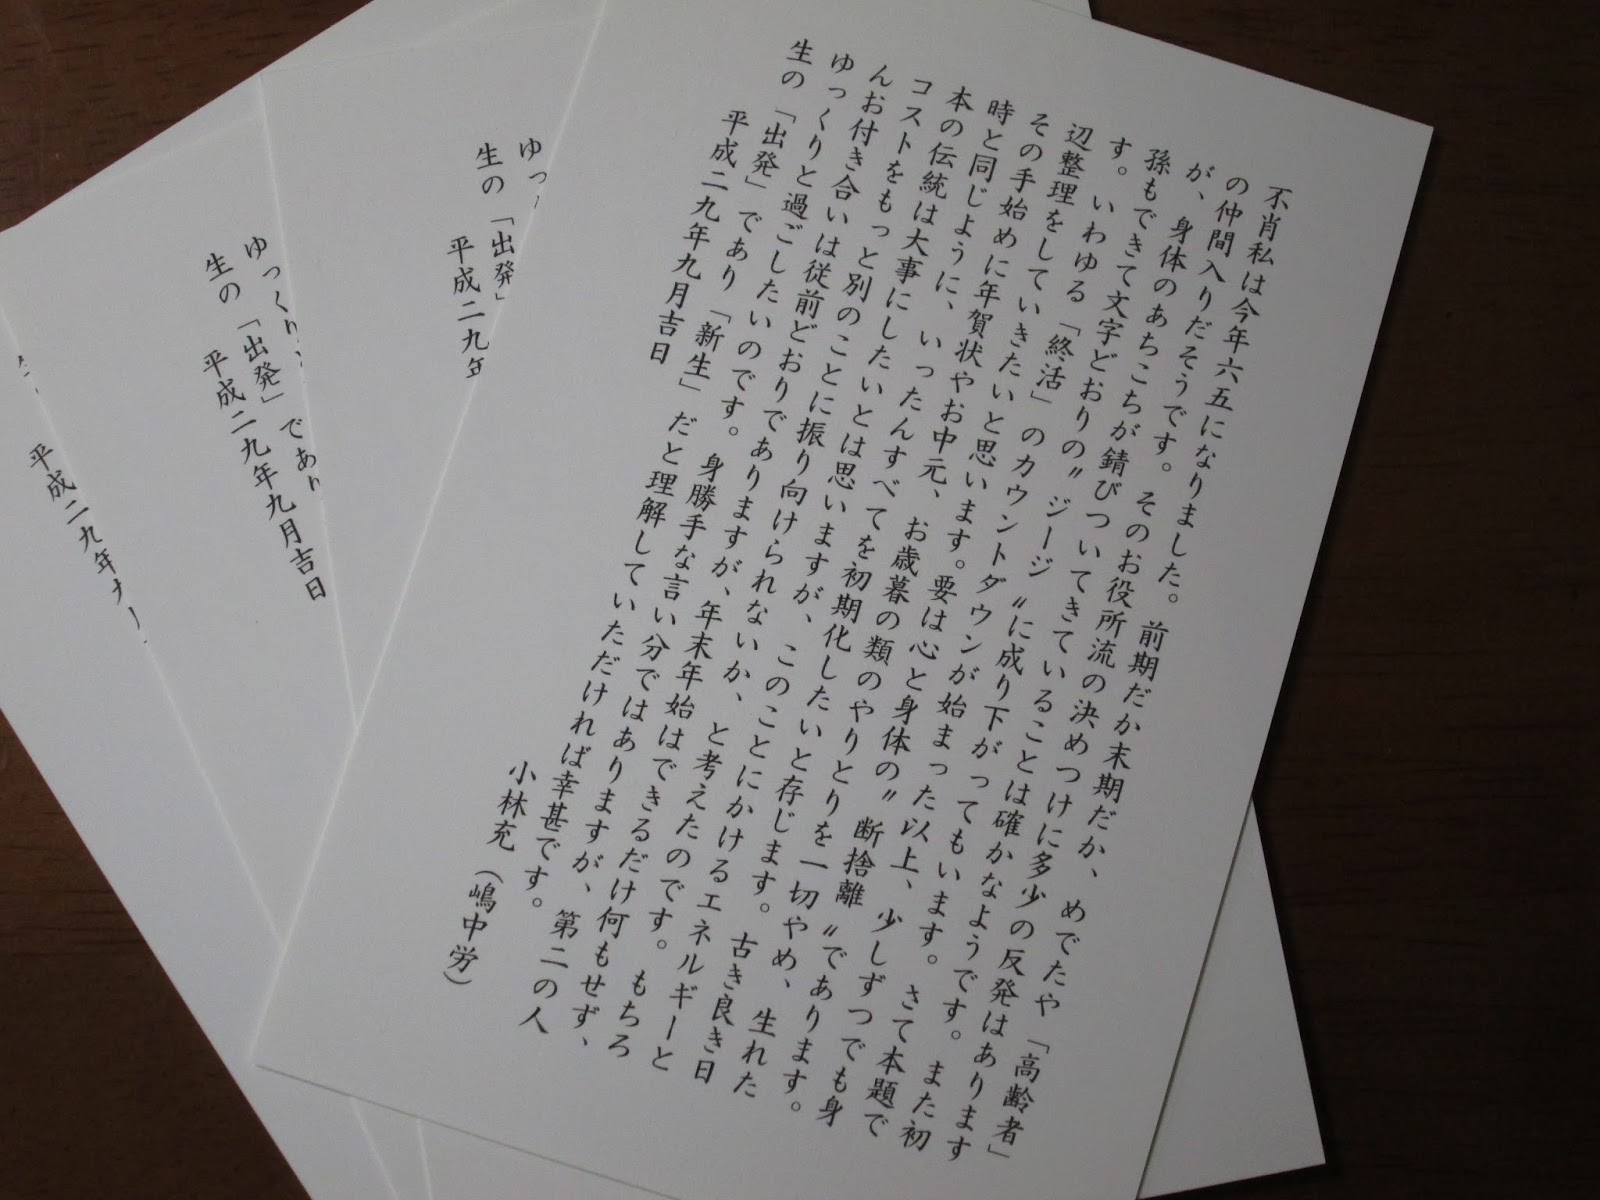 不肖私は今年六五になりました。前期だか末期だか、めでたや「高齢者」
の仲間入りだそうです。そのお役所流の決めつけに多少の反発はあります
が、身体のあちこちが錆びついてきていることは確かなようです。また初
孫もできて文字どおりの〝ジージ〟に成り下がってもいます。さて本題で
す。いわゆる「終活」のカウントダウンが始まった以上、少しずつでも身
辺整理をしていきたいと思います。要は心と身体の〝断捨離〟であります。
その手始めに年賀状やお中元、お歳暮の類のやりとりを一切やめ、生れた
時と同じように、いったんすべてを初期化したいと存じます。古き良き日
本の伝統は大事にしたいとは思いますが、このことにかけるエネルギーと
コストをもっと別のことに振り向けられないか、と考えたのです。もちろ
んお付き合いは従前どおりでありますが、年末年始はできるだけ何もせず、
ゆっくりと過ごしたいのです。身勝手な言い分ではありますが、第二の人
生の「出発」であり「新生」だと理解していただければ幸甚です。
平成二九年九月吉日
小林充（嶋中労）
ゆっ
生の「出発」
平成二九年
ゆっくり
生の「出発」であり
平成二九年九月吉日
平成二九年